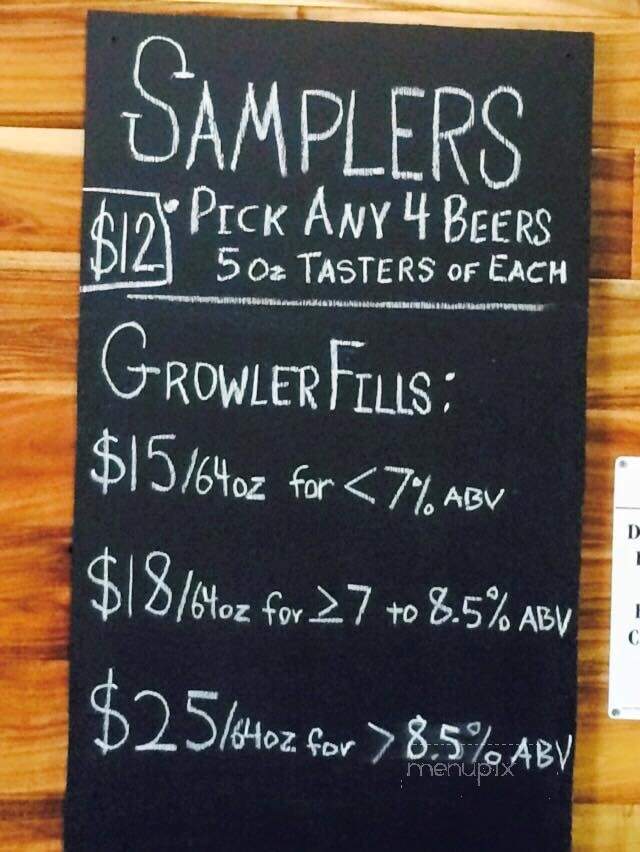 SAMPLERS
$12 • PICK ANY 4 BEERS
5 Oz TASTERS OF EACH
GROWLER FILLS:
$15/64oz for <7% ABV
$18/64oz for ≥7 to 8.5% ABV
$25/64oz for >8.5% ABV
menupix
D
C